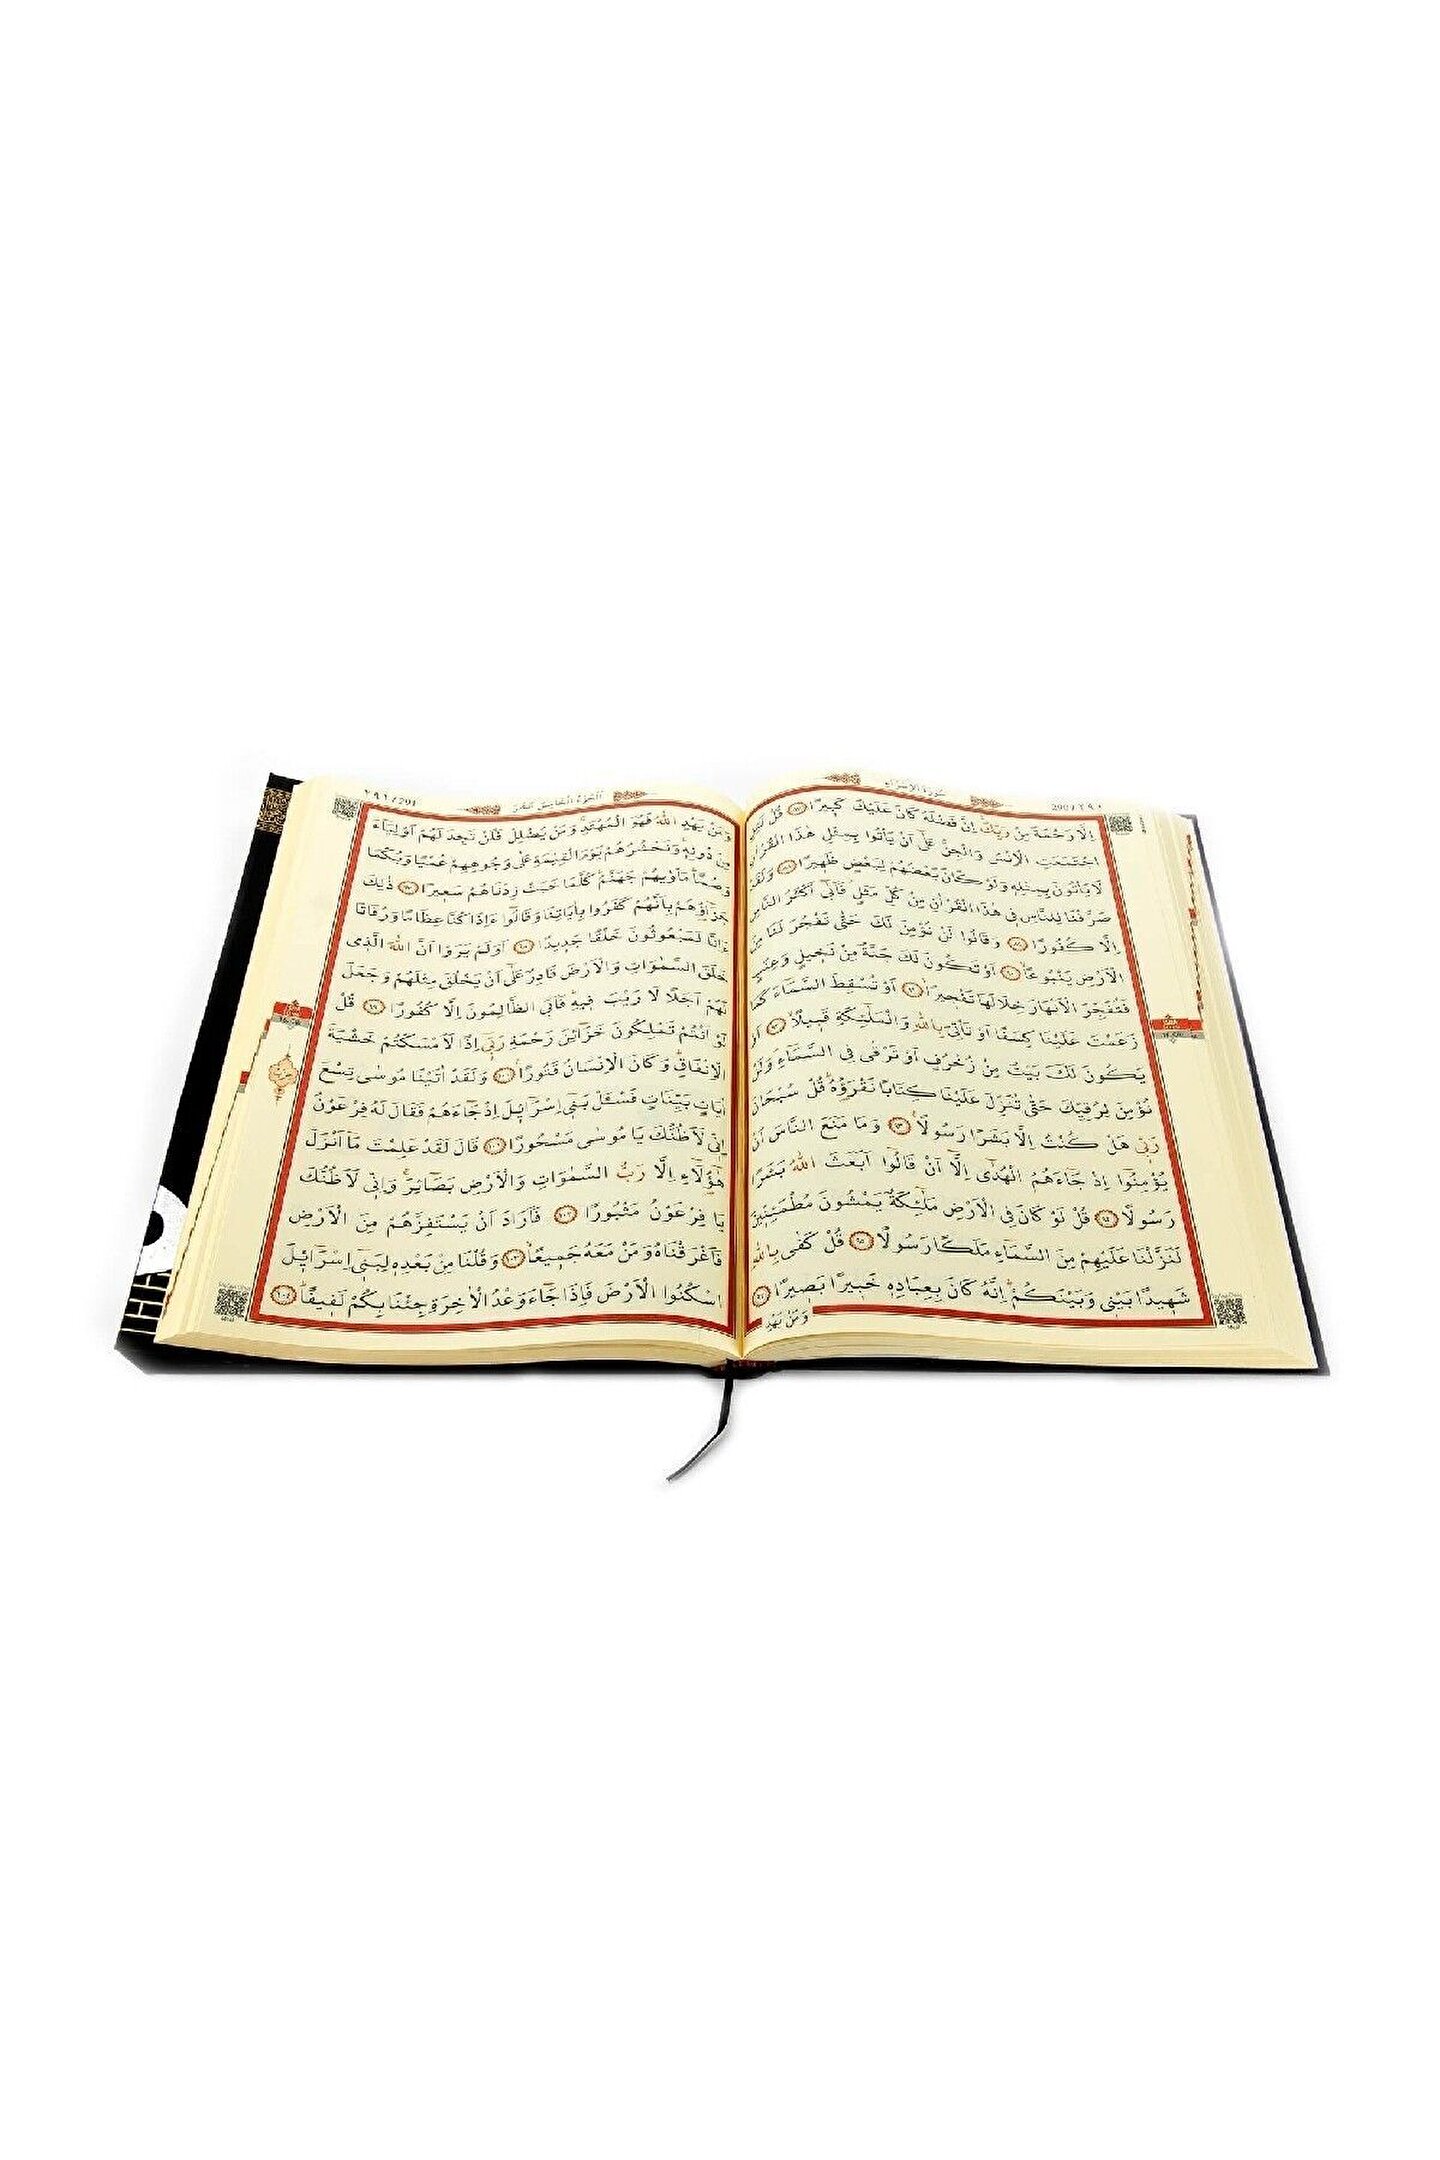 سورة الإسراء
290 / ٢٩٠
اِلَّا رَحْمَةً مِنْ رَبِّكَۜ اِنَّ فَضْلَهُ كَانَ عَلَيْكَ كَبٖيرًا ﴿٨٧﴾ قُلْ لَئِنِ
اجْتَمَعَتِ الْاِنْسُ وَالْجِنُّ عَلٰٓى اَنْ يَأْتُوا بِمِثْلِ هٰذَا الْقُرْاٰنِ
لَا يَأْتُونَ بِمِثْلِهٖ وَلَوْ كَانَ بَعْضُهُمْ لِبَعْضٍ ظَهٖيرًا ﴿٨٨﴾ وَلَقَدْ
صَرَّفْنَا لِلنَّاسِ فٖي هٰذَا الْقُرْاٰنِ مِنْ كُلِّ مَثَلٍۘ فَاَبٰٓى اَكْثَرُ النَّاسِ
اِلَّا كُفُورًا ﴿٨٩﴾ وَقَالُوا لَنْ نُؤْمِنَ لَكَ حَتّٰى تَفْجُرَ لَنَا مِنَ
الْاَرْضِ يَنْبُوعًاۙ ﴿٩٠﴾ اَوْ تَكُونَ لَكَ جَنَّةٌ مِنْ نَخٖيلٍ وَعِنَبٍ
فَتُفَجِّرَ الْاَنْهَارَ خِلَالَهَا تَفْجٖيرًاۙ ﴿٩١﴾ اَوْ تُسْقِطَ السَّمَٓاءَ كَمَا
زَعَمْتَ عَلَيْنَا كِسَفًا اَوْ تَأْتِيَ بِاللّٰهِ وَالْمَلٰٓئِكَةِ قَبٖيلًاۙ ﴿٩٢﴾ اَوْ
يَكُونَ لَكَ بَيْتٌ مِنْ زُخْرُفٍ اَوْ تَرْقٰى فِي السَّمَٓاءِۜ وَلَنْ
نُؤْمِنَ لِرُقِيِّكَ حَتّٰى تُنَزِّلَ عَلَيْنَا كِتَابًا نَقْرَؤُ۬هُۜ قُلْ سُبْحَانَ
رَبّٖي هَلْ كُنْتُ اِلَّا بَشَرًا رَسُولًا ﴿٩٣﴾ وَمَا مَنَعَ النَّاسَ اَنْ
يُؤْمِنُٓوا اِذْ جَٓاءَهُمُ الْهُدٰٓى اِلَّٓا اَنْ قَالُٓوا اَبَعَثَ اللّٰهُ بَشَرًا
رَسُولًا ﴿٩٤﴾ قُلْ لَوْ كَانَ فِي الْاَرْضِ مَلٰٓئِكَةٌ يَمْشُونَ مُطْمَئِنّٖينَ
لَنَزَّلْنَا عَلَيْهِمْ مِنَ السَّمَٓاءِ مَلَكًا رَسُولًا ﴿٩٥﴾ قُلْ كَفٰى بِاللّٰهِ
شَهٖيدًا بَيْنٖي وَبَيْنَكُمْۜ اِنَّهُ كَانَ بِعِبَادِهٖ خَبٖيرًا بَصٖيرًا ﴿٩٦﴾
وَمَنْ يَهْدِ
الجزء الخامس عشر
٢٩١ / 291
وَمَنْ يَهْدِ اللّٰهُ فَهُوَ الْمُهْتَدِۚ وَمَنْ يُضْلِلْ فَلَنْ تَجِدَ لَهُمْ اَوْلِيَٓاءَ
مِنْ دُونِهٖۜ وَنَحْشُرُهُمْ يَوْمَ الْقِيٰمَةِ عَلٰى وُجُوهِهِمْ عُمْيًا وَبُكْمًا
وَصُمًّاۜ مَأْوٰيهُمْ جَهَنَّمُۜ كُلَّمَا خَبَتْ زِدْنَاهُمْ سَعٖيرًا ﴿٩٧﴾ ذٰلِكَ
جَزَٓاؤُ۬هُمْ بِاَنَّهُمْ كَفَرُوا بِاٰيَاتِنَا وَقَالُٓوا ءَاِذَا كُنَّا عِظَامًا وَرُفَاتًا
ءَاِنَّا لَمَبْعُوثُونَ خَلْقًا جَدٖيدًا ﴿٩٨﴾ اَوَلَمْ يَرَوْا اَنَّ اللّٰهَ الَّذٖي
خَلَقَ السَّمٰوَاتِ وَالْاَرْضَ قَادِرٌ عَلٰٓى اَنْ يَخْلُقَ مِثْلَهُمْ وَجَعَلَ
لَهُمْ اَجَلًا لَا رَيْبَ فٖيهِۜ فَاَبَى الظَّالِمُونَ اِلَّا كُفُورًا ﴿٩٩﴾ قُلْ
لَوْ اَنْتُمْ تَمْلِكُونَ خَزَٓائِنَ رَحْمَةِ رَبّٖٓي اِذًا لَاَمْسَكْتُمْ خَشْيَةَ
الْاِنْفَاقِۜ وَكَانَ الْاِنْسَانُ قَتُورًا ﴿١٠٠﴾ وَلَقَدْ اٰتَيْنَا مُوسٰى تِسْعَ
اٰيَاتٍ بَيِّنَاتٍ فَسْـَٔلْ بَنٖٓي اِسْرَٓائٖلَ اِذْ جَٓاءَهُمْ فَقَالَ لَهُ فِرْعَوْنُ
اِنّٖي لَاَظُنُّكَ يَا مُوسٰى مَسْحُورًا ﴿١٠١﴾ قَالَ لَقَدْ عَلِمْتَ مَٓا اَنْزَلَ
هٰٓؤُ۬لَٓاءِ اِلَّا رَبُّ السَّمٰوَاتِ وَالْاَرْضِ بَصَٓائِرَۚ وَاِنّٖي لَاَظُنُّكَ
يَا فِرْعَوْنُ مَثْبُورًا ﴿١٠٢﴾ فَاَرَادَ اَنْ يَسْتَفِزَّهُمْ مِنَ الْاَرْضِ
فَاَغْرَقْنَاهُ وَمَنْ مَعَهُ جَمٖيعًاۙ ﴿١٠٣﴾ وَقُلْنَا مِنْ بَعْدِهٖ لِبَنٖٓي اِسْرَٓائٖلَ
اسْكُنُوا الْاَرْضَ فَاِذَا جَٓاءَ وَعْدُ الْاٰخِرَةِ جِئْنَا بِكُمْ لَفٖيفًاۜ ﴿١٠٤﴾